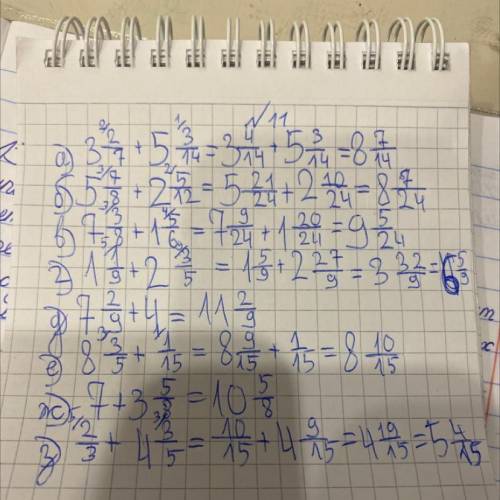 √11
а) 3 2/7 + 5 3/14 = 3 4/14 + 5 3/14 = 8 7/14
б) 5 7/8 + 2 5/12 = 5 21/24 + 2 10/24 = 8 7/24
в) 7 3/8 + 1 5/6 = 7 9/24 + 1 20/24 = 9 5/24
г) 1 1/9 + 2 3/5 = 1 5/9 + 2 27/9 = 3 32/9 = 6 5/9
д) 7 2/9 + 4 = 11 2/9
е) 8 3/5 + 1/15 = 8 9/15 + 1/15 = 8 10/15
ж) 7 + 3 5/8 = 10 5/8
з) 2/3 + 4 3/5 = 10/15 + 4 9/15 = 4 19/15 = 5 4/15